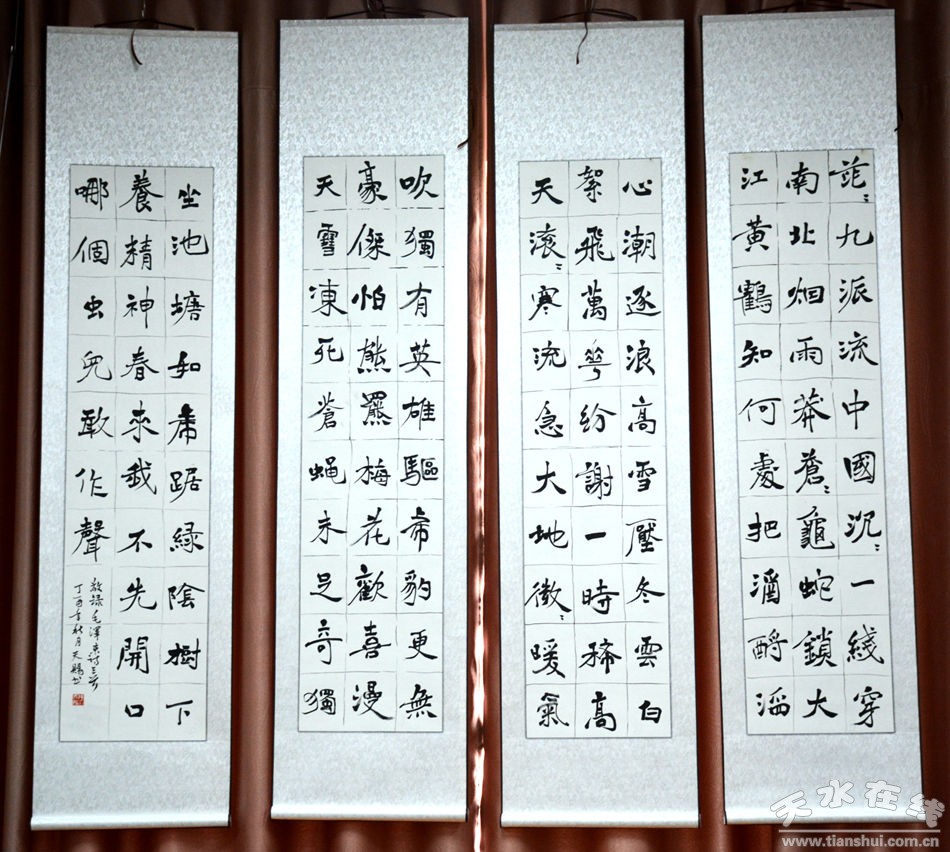 茫〻九派流中國沉〻一綫穿
南北烟雨莽蒼〻龜蛇鎖大
江黃鶴知何處把酒酹滔
〻心潮逐浪高雪壓冬雲白
絮飛萬華紛謝一時稀高
天滾〻寒流急大地微〻暖氣
吹獨有英雄驅虎豹更無
豪傑怕熊羆梅花歡喜漫
天雪凍死蒼蝇未足奇獨
坐池塘如虎踞緑陰樹下
養精神春來我不先開口
哪個虫兒敢作聲
敬錄毛澤東詩三首
丁酉年秋月天賜书
天水在线
www.tianshui.com.cn